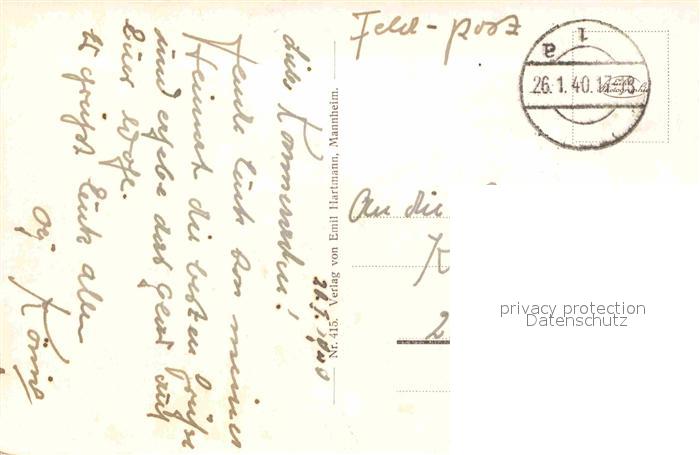 Feld-post
1
a
26.1.40.17-18
Echte
Photographie
An die
K
2.
26.1.1940
Liebe Kameraden!
Sende Euch von meiner
Heimat die besten Grüße
und
Euer
Es grüßt Euch alle
König
Nr. 415. Verlag von Emil Hartmann, Mannheim.
privacy protection
Datenschutz